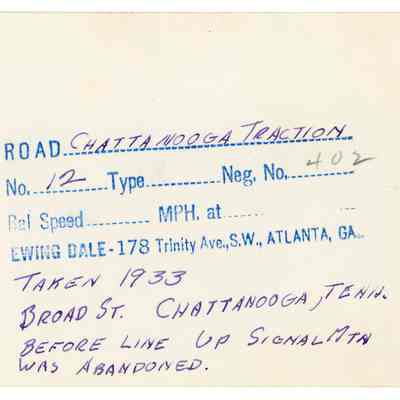 ROAD CHATTANOOGA TRACTION
No. 12 Type Neg. No. 402
Ral Speed MPH. at
EWING DALE-178 Trinity Ave., S.W., ATLANTA, GA.
TAKEN 1933
BROAD ST. CHATTANOOGA, TENN.
BEFORE LINE UP SIGNAL MTN
WAS ABANDONED.